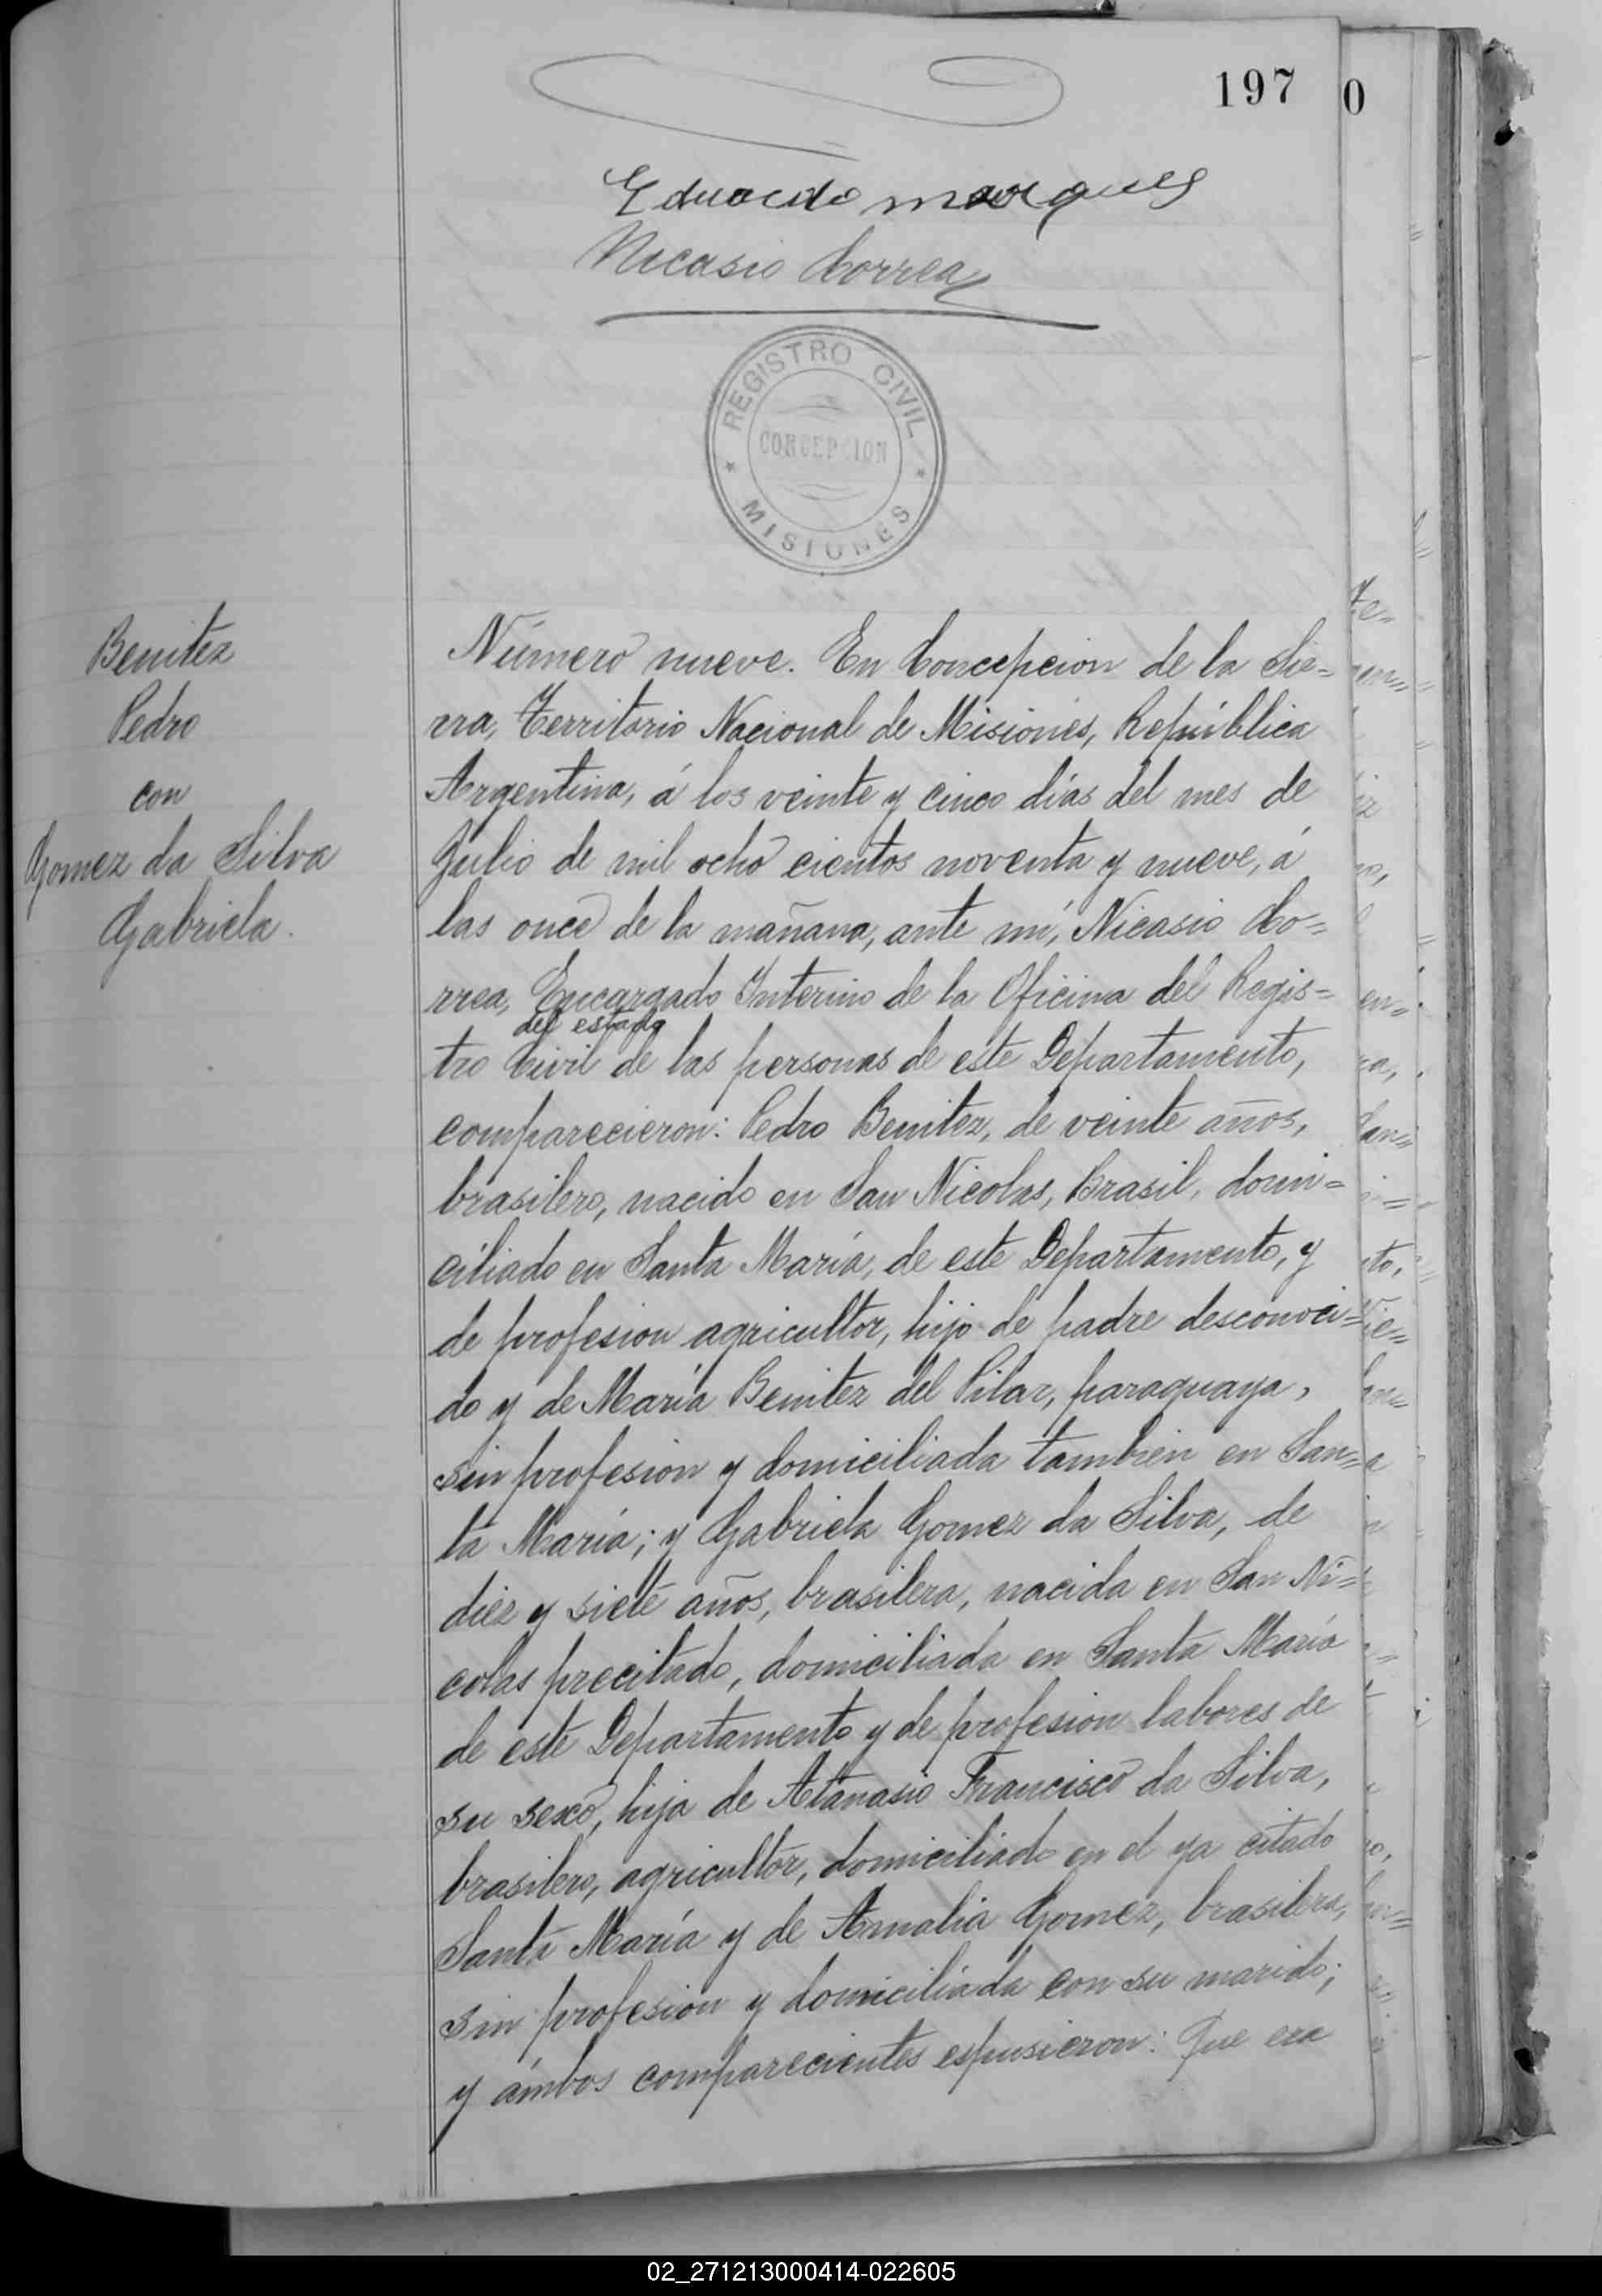 197
0
Eduardo marques
Nicasio Correa
REGISTRO CIVIL
CONCEPCION
MISIONES
Benitez
Pedro
con
Gomez da Silva
Gabriela.
Número nueve. En Concepcion de la Sie=
rra, Territorio Nacional de Misiones, República
Argentina, á los veinte y cinco días del mes de
Julio de mil ocho cientos noventa y nueve, á
las once de la mañana, ante mí, Nicasio Co=
rrea, Encargado Interino de la Oficina del Regis=
del estado
tro Civil de las personas de este Departamento,
comparecieron: Pedro Benitez, de veinte años,
brasilero, nacido en San Nicolas, Brasil, domi=
ciliado en Santa María, de este Departamento, y
de profesion agricultor, hijo de padre desconoci=
do y de María Benitez del Pilar, paraguaya,
sin profesion y domiciliada tambien en San=
ta María; y Gabriela Gomez da Silva, de
diez y siete años, brasilera, nacida en San Ni=
colas precitado, domiciliada en Santa María
de este Departamento y de profesion labores de
su sexo, hija de Atanasio Francisco da Silva,
brasilero, agricultor, domiciliado en el ya citado
Santa María y de Amalia Gomez, brasilera,
sin profesion y domiciliada con su marido;
y ámbos comparecientes espusieron: Que era
02_271213000414-022605